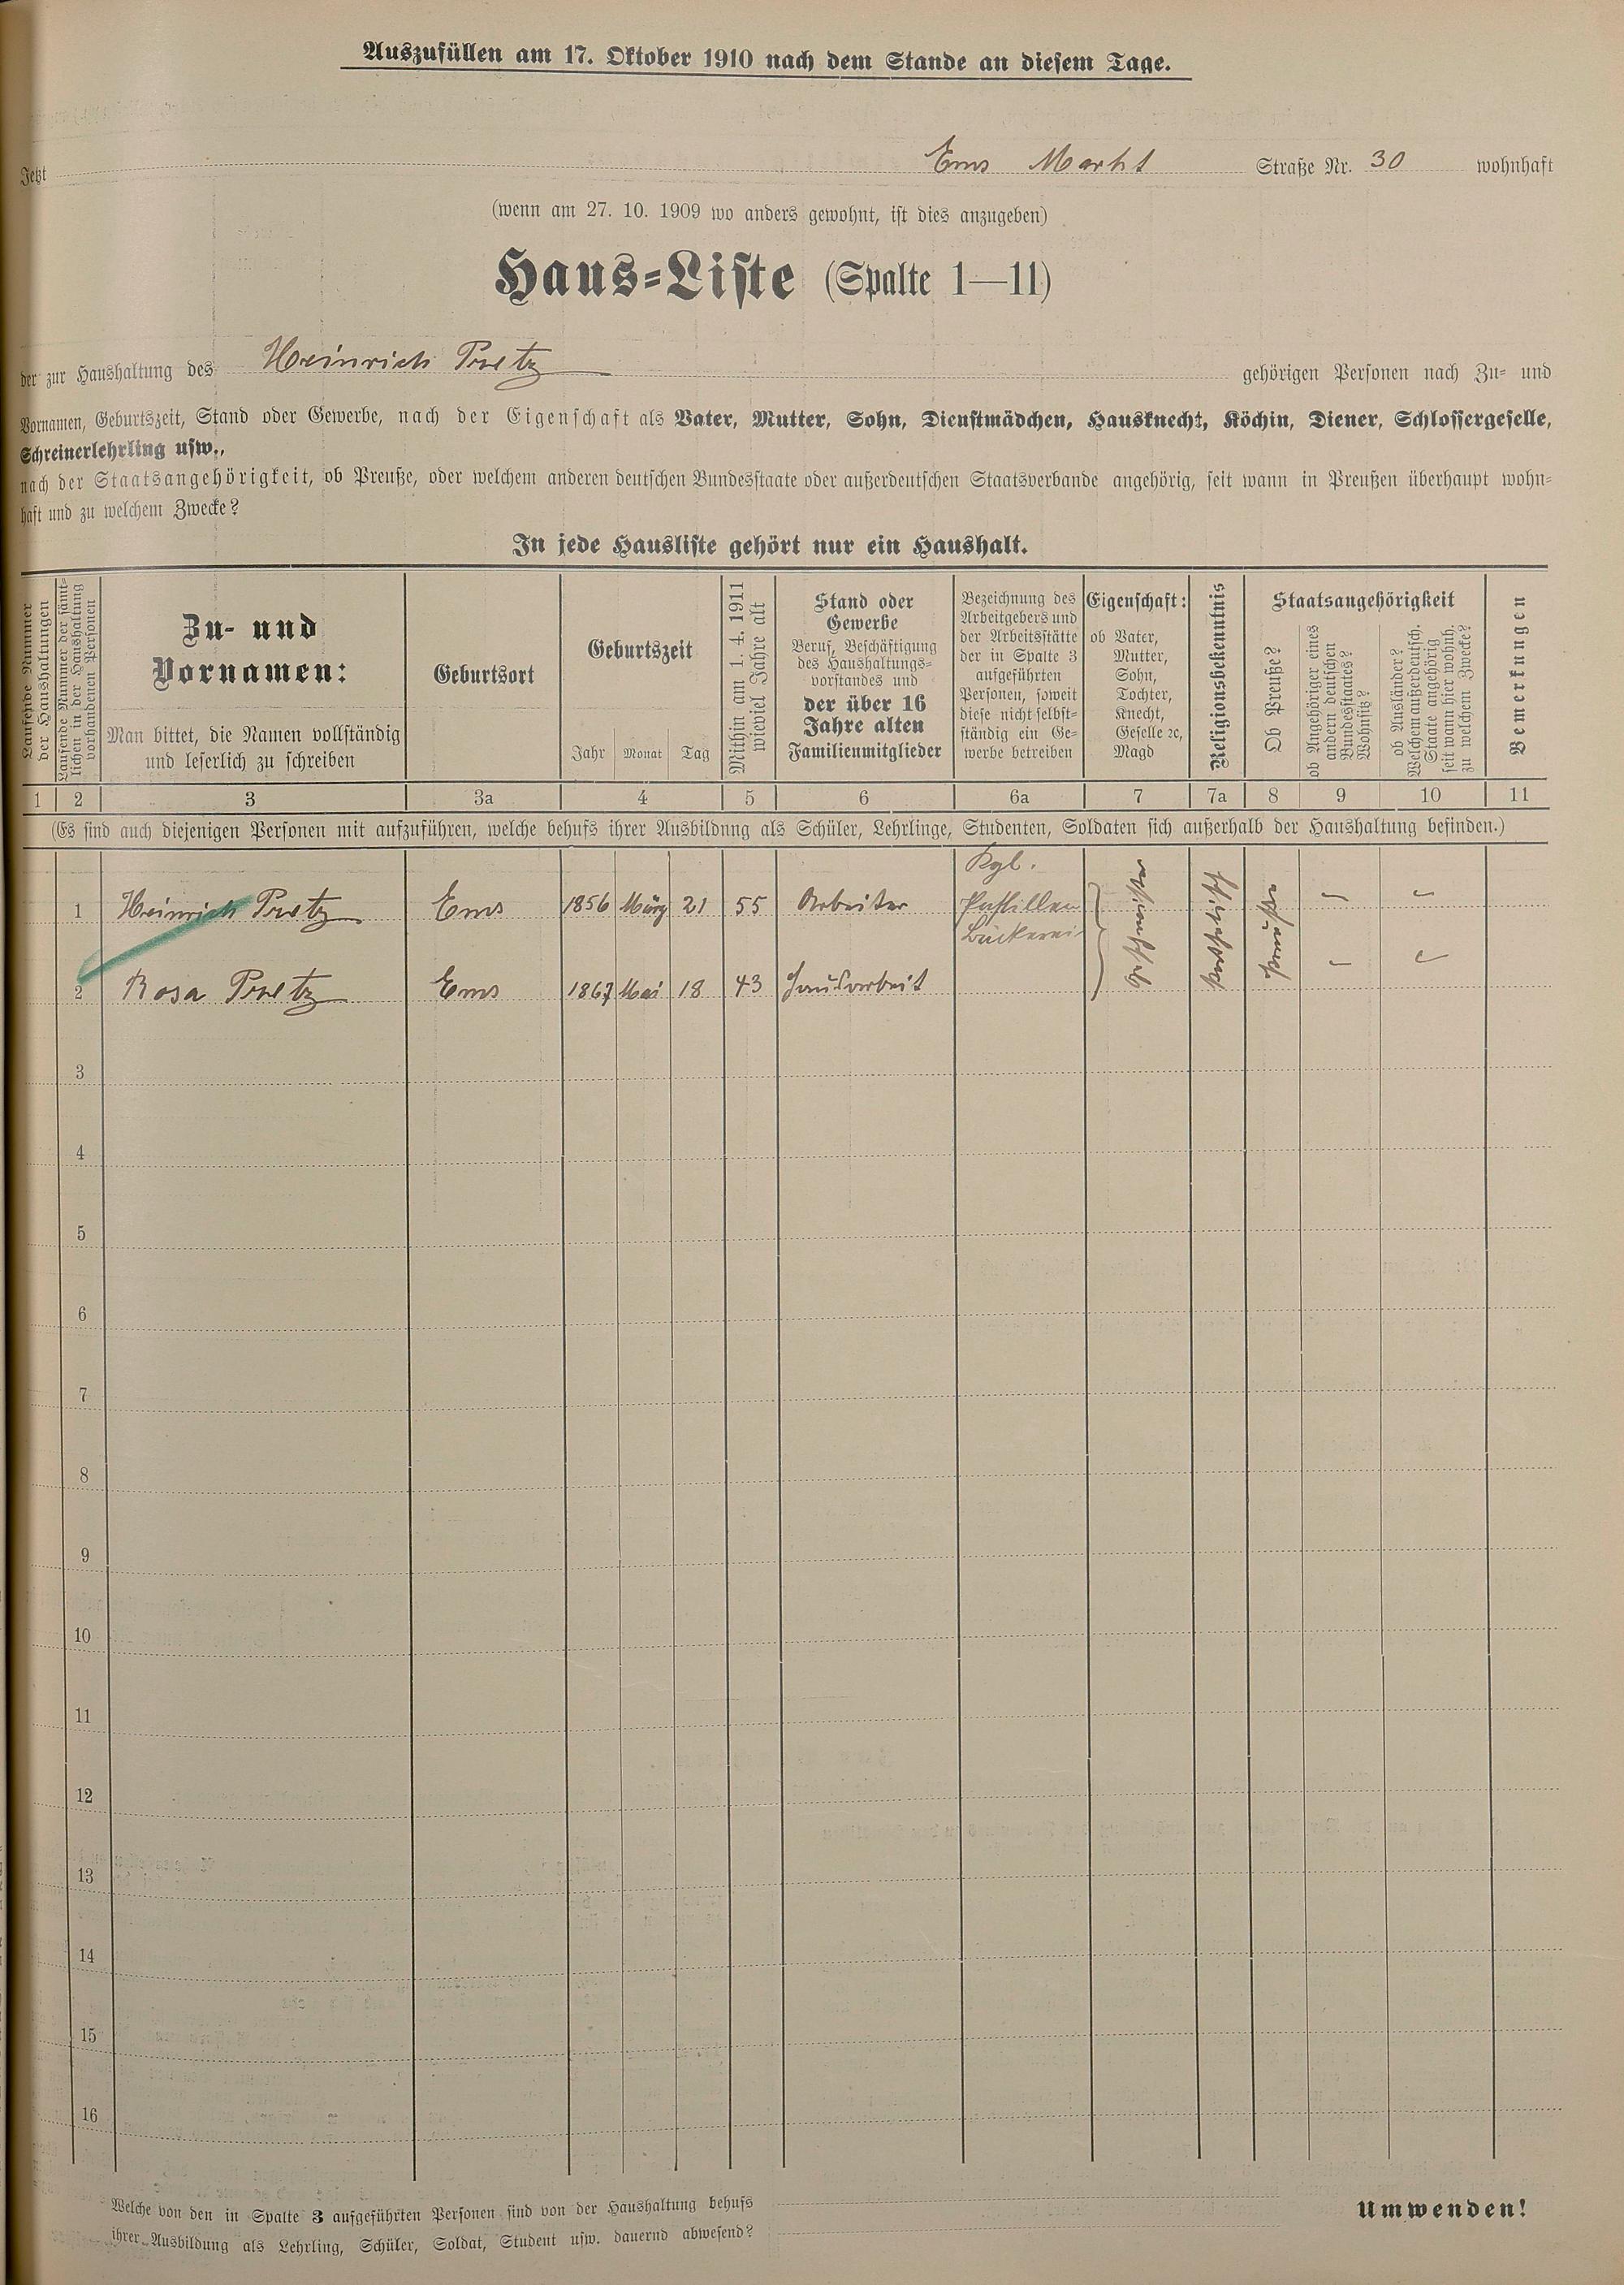 Auszufüllen am 17. Oktober 1910 nach dem Stande an diesem Tage.
Jetzt Ems Markt Straße Nr. 30 wohnhaft
(wenn am 27. 10. 1909 wo anders gewohnt, ist dies anzugeben)
Haus-Liste (Spalte 1—11)
der zur Haushaltung des Heinrich Pretz gehörigen Personen nach Zu- und
Vornamen, Geburtszeit, Stand oder Gewerbe, nach der Eigenschaft als Vater, Mutter, Sohn, Dienstmädchen, Hausknecht, Köchin, Diener, Schlossergeselle,
Schreinerlehrling usw.,
nach der Staatsangehörigkeit, ob Preuße, oder welchem anderen deutschen Bundesstaate oder außerdeutschen Staatsverbande angehörig, seit wann in Preußen überhaupt wohn-
haft und zu welchem Zwecke?
In jede Hausliste gehört nur ein Haushalt.
Laufende Nummer
der Haushaltungen
Laufende Nummer der sämt-
lichen in der Haushaltung
vorhandenen Personen
Zu- und
Vornamen:
Man bittet, die Namen vollständig
und leserlich zu schreiben
Geburtsort
Geburtszeit
Jahr Monat Tag
Mithin am 1. 4. 1911
wieviel Jahre alt
Stand oder
Gewerbe
Beruf, Beschäftigung
des Haushaltungs-
vorstandes und
der über 16
Jahre alten
Familienmitglieder
Bezeichnung des
Arbeitgebers und
der Arbeitsstätte
der in Spalte 3
aufgeführten
Personen, soweit
diese nicht selbst-
ständig ein Ge-
werbe betreiben
Eigenschaft:
ob Vater,
Mutter,
Sohn,
Tochter,
Knecht,
Geselle ꝛc,
Magd
Religionsbekenntnis
Staatsangehörigkeit
Ob Preuße?
ob Angehöriger eines
andern deutschen
Bundesstaates?
Wohnsitz?
ob Ausländer?
Welchem außerdeutsch.
Staate angehörig
seit wann hier wohnh.
zu welchem Zwecke?
Bemerkungen
1 2 3 3a 4 5 6 6a 7 7a 8 9 10 11
(Es sind auch diejenigen Personen mit aufzuführen, welche behufs ihrer Ausbildung als Schüler, Lehrlinge, Studenten, Soldaten sich außerhalb der Haushaltung befinden.)
Kgl.
1 Heinrich Pretz Ems 1856 März 21 55 Arbeiter Pastillen
Bäckerei
Geschwister
katholisch
Preuße
2 Rosa Pretz Ems 1867 Mai 18 43 Hausarbeit
3
4
5
6
7
8
9
10
11
12
13
14
15
16
Welche von den in Spalte 3 aufgeführten Personen sind von der Haushaltung behufs
ihrer Ausbildung als Lehrling, Schüler, Soldat, Student usw. dauernd abwesend?
Umwenden!